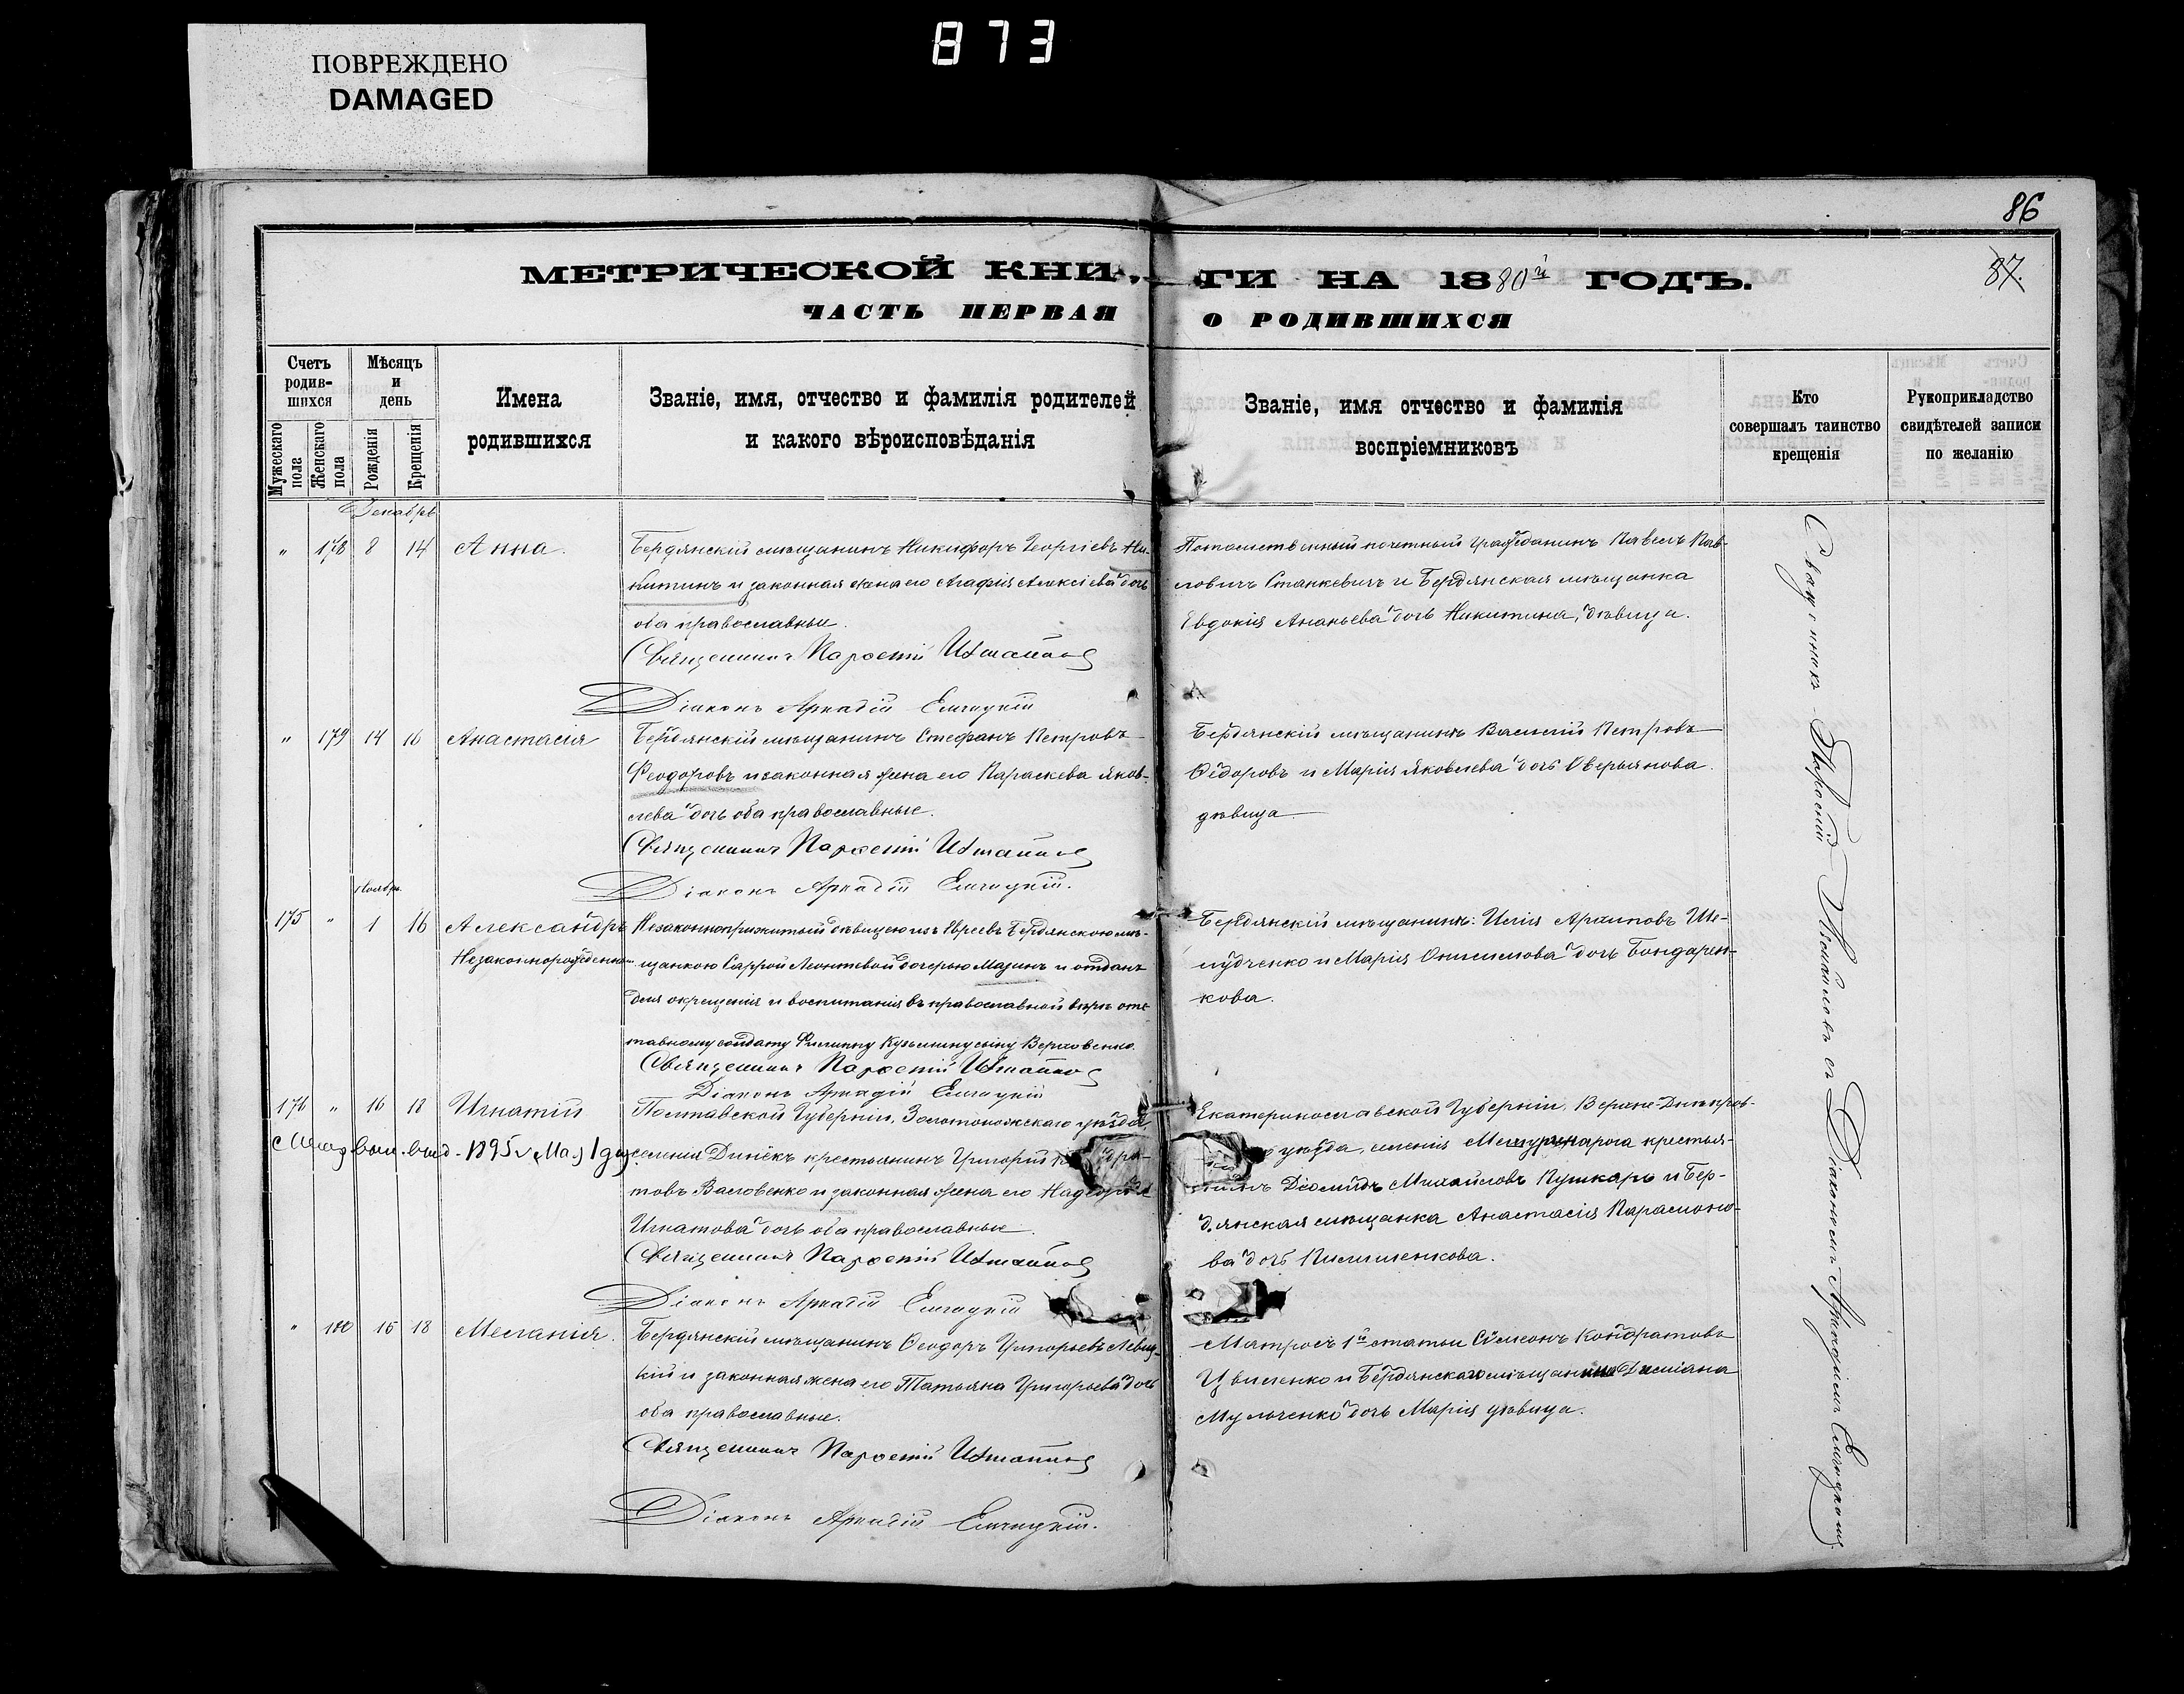 873
ПОВРЕЖДЕНО
DAMAGED
86
87.
МЕТРИЧЕСКОЙ КНИ- ГИ НА 1880й ГОДЪ.
ЧАСТЬ ПЕРВАЯ О РОДИВШИХСЯ
Счетъ родив- шихся
Мужескаго пола
Женскаго пола
Мѣсяцъ и день
Рожденія
Крещенія
Имена родившихся
Званіе, имя, отчество и фамилія родителей
и какого вѣроисповѣданія
Званіе, имя отчество и фамилія
воспріемниковъ
Кто
совершалъ таинство
крещенія
Рукоприкладство
свидѣтелей записи
по желанію
Декабрь
" 178 8 14 Анна.
Бердянскій мѣщанинъ Никифоръ Георгіевъ Ни-
китинъ и законная жена его Агафія Алексіева дочь
оба православные.
Священникъ
Діаконъ Аркадій
Потомственный почетный гражданинъ Павелъ Пав-
ловичъ Станкевичъ и Бердянская мѣщанка
Евдокія Ананьева дочь Никитина, дѣвица.
" 179 14 16 Анастасія
Бердянскій мѣщанинъ Стефанъ Петровъ
Феодоровъ и законная жена его Параскева Яков-
лева дочь оба православные.
Священникъ
Діаконъ Аркадій
Бердянскій мѣщанинъ Василій Петровъ
Ѳедоровъ и Марія Яковлева дочь Оверьянова
дѣвица
Ноябрь
175 " 1 16 Александръ
Незаконнорожденный
Незаконноприжитый дѣвицею изъ Евреевъ Бердянскою мѣ-
щанкою Саррой Леонтевой дочерью Мазинъ и отданъ
для окрещенія и воспитанія въ православной вѣрѣ отс-
тавному солдату Филиппу Кузьмину сыну
Священникъ
Діаконъ Аркадій
Бердянскій мѣщанинъ: Илія Архиповъ Ше-
лудченко и Марія Онисимова дочь Бондарен-
кова.
176 " 16 18 Игнатій
1895
Полтавской Губерніи, Золотоножскаго уѣзда,
селенія крестьянинъ Григорій
товъ Васловенко и законная жена его
Игнатова дочь оба православные
Священникъ
Діаконъ Аркадій
Екатеринославской Губерніи, Верхне-Днѣпров-
уѣзда, селенія Мешуринарога крестья-
нинъ Діомидъ Михайловъ Пушкарь и Бер-
дянская мѣщанка Анастасія Парамоно-
ва дочь
" 180 16 18 Меланія.
Бердянскій мѣщанинъ Ѳеодоръ Григорьевъ Левиц-
кій и законная жена его Татьяна Григорьева дочь
оба православные.
Священникъ
Діаконъ Аркадій
Матросъ 1й статьи Сѵмеонъ Кондратовъ
Цвиленко и Бердянскаго мѣщанина Даміана
Мульченко дочь Марія дѣвица.
Священникъ съ Діакономъ Аркадіемъ